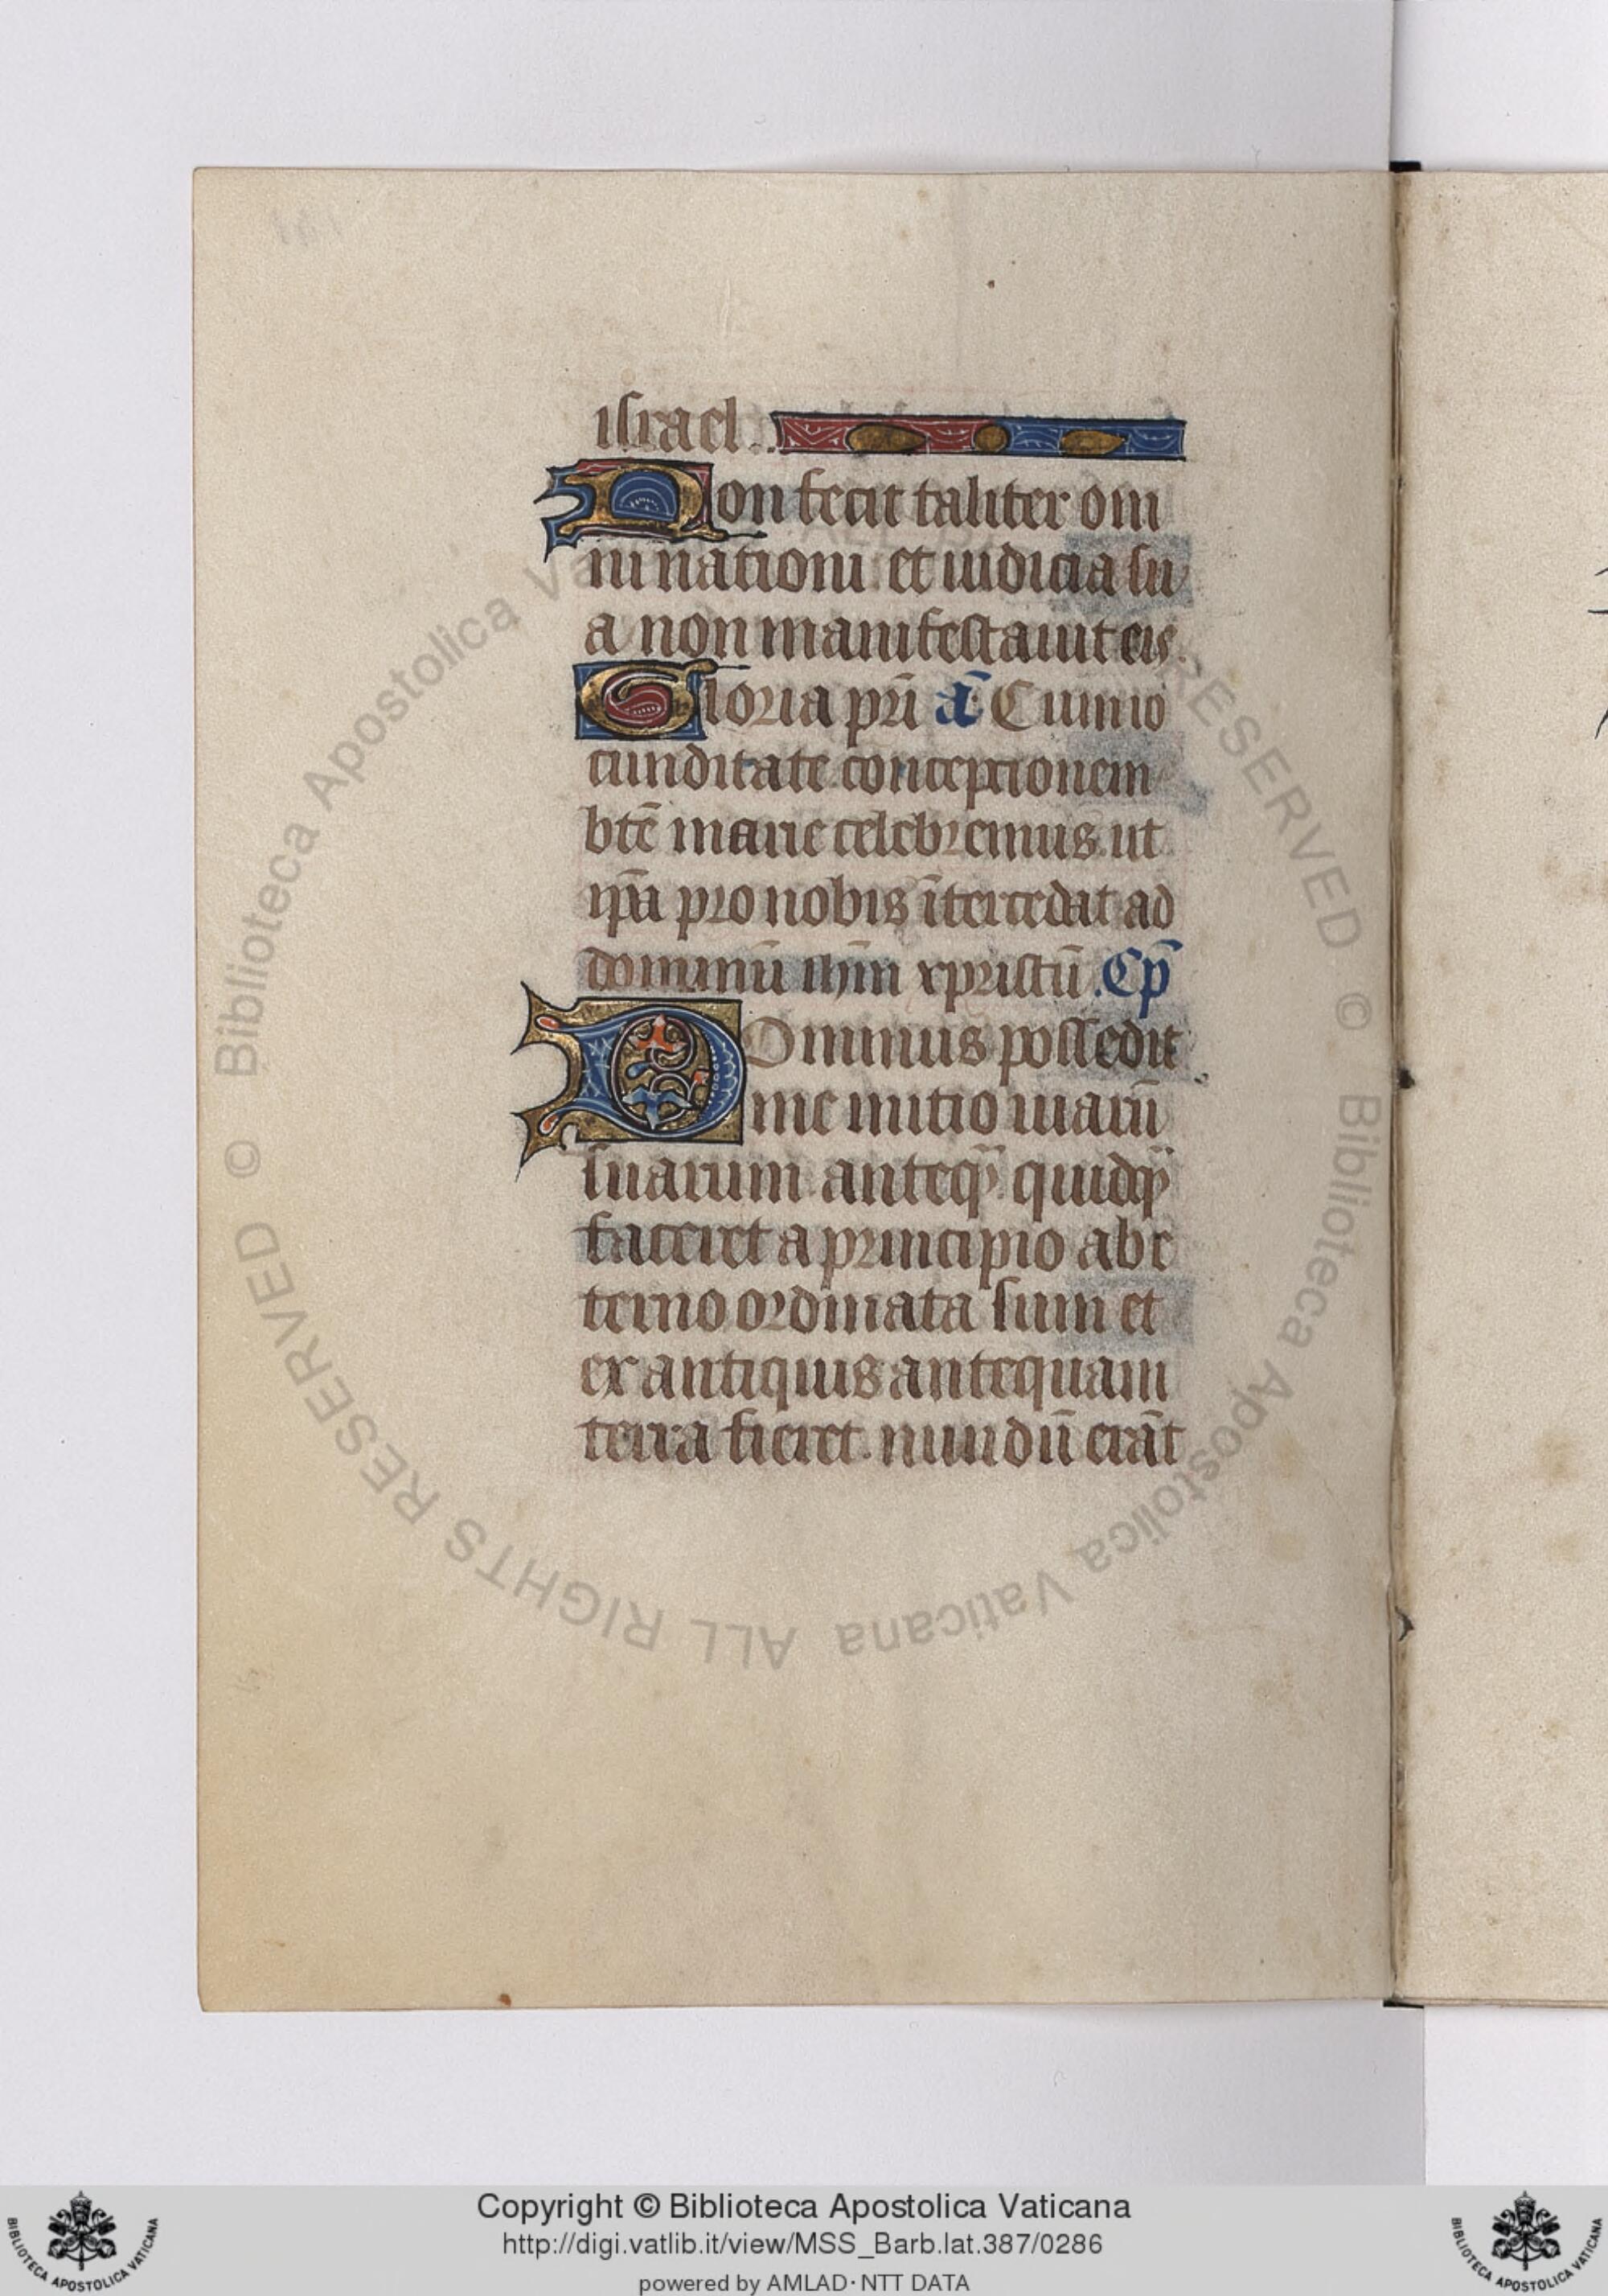 israel.
Non fecit taliter om
ni nationi et iudicia su
a non manifestauit eis.
Gloria pr̄i ā Cum io
cunditate conceptionem
btē marie celebremus ut
ip̄a pro nobis ītercedat ad
dominū ihm̄ xpristū .Cp̄
DOminus possedit
me initio uiarū
suarum anteq̄ quidq̄
faceret a principio ab e
terno ordinata sum et
ex antiquis antequam
terra fieret nundū erāt
© Biblioteca Apostolica Vaticana ALL RIGHTS RESERVED © Biblioteca Apostolica Vaticana ALL RIGHTS RESERVED
Copyright © Biblioteca Apostolica Vaticana
http://digi.vatlib.it/view/MSS_Barb.lat.387/0286
powered by AMLAD·NTT DATA
BIBLIOTECA APOSTOLICA VATICANA
BIBLIOTECA APOSTOLICA VATICANA